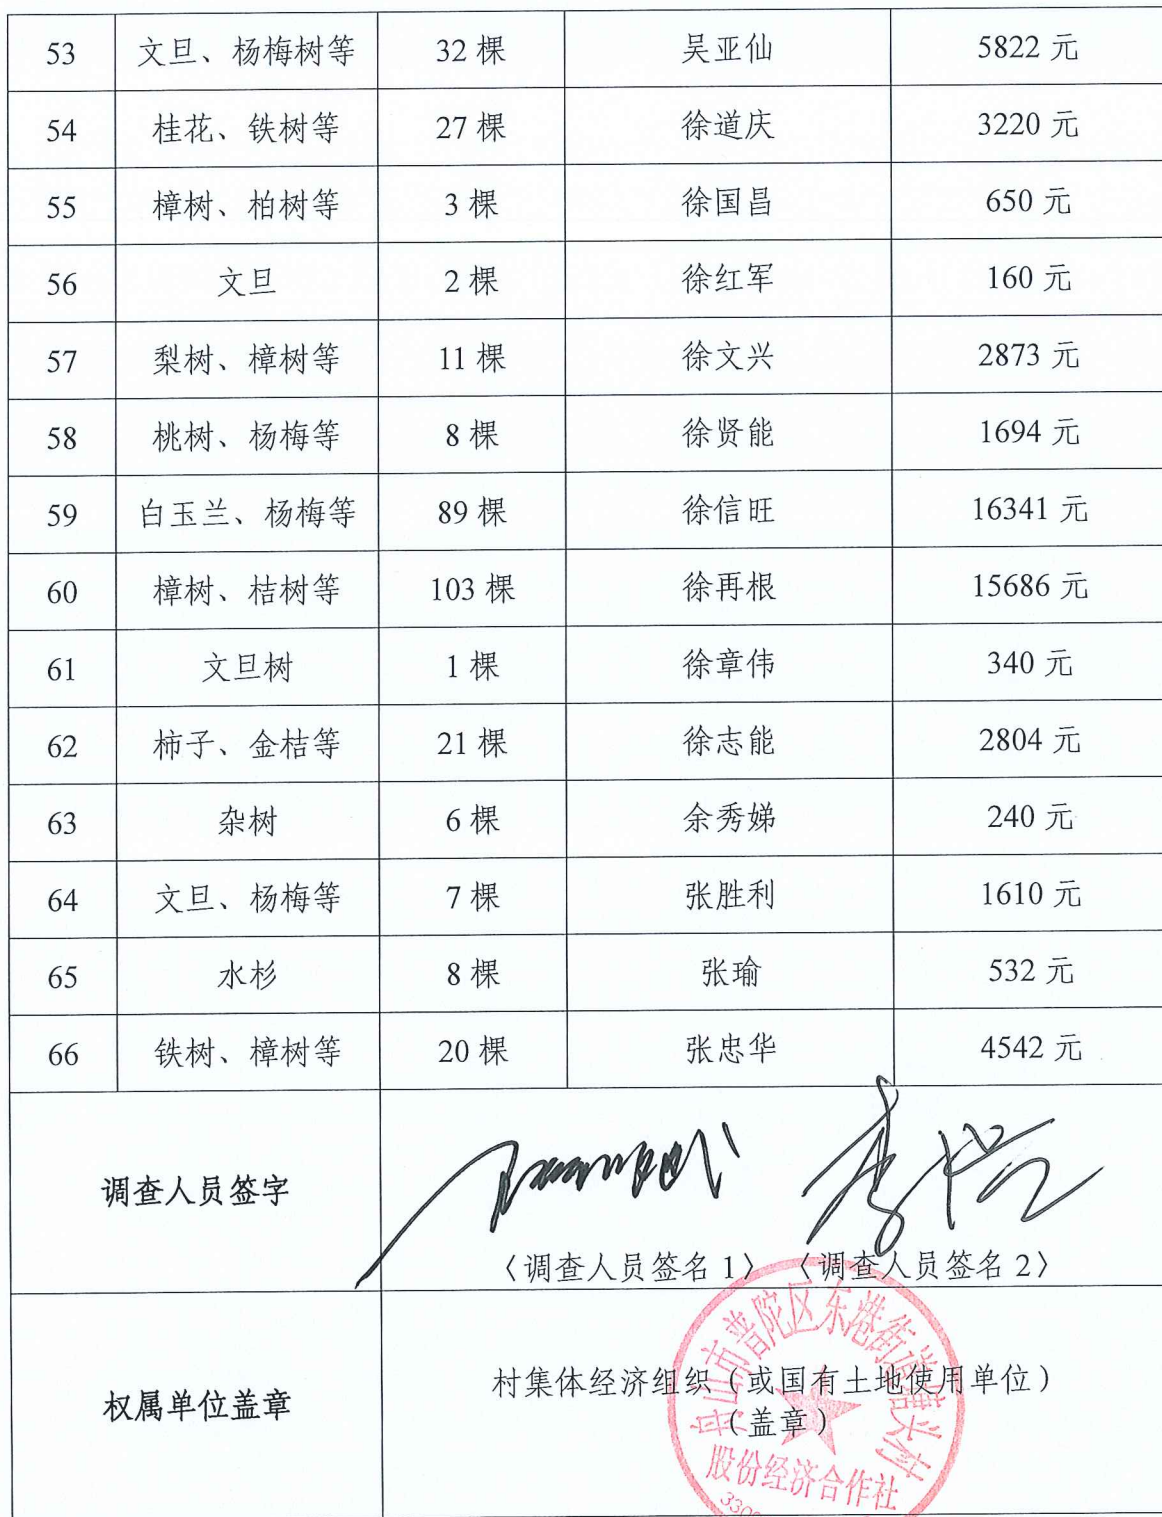 53 文旦、杨梅树等 32 棵 吴亚仙 5822 元
54 桂花、铁树等 27 棵 徐道庆 3220 元
55 樟树、柏树等 3 棵 徐国昌 650 元
56 文旦 2 棵 徐红军 160 元
57 梨树、樟树等 11 棵 徐文兴 2873 元
58 桃树、杨梅等 8 棵 徐贤能 1694 元
59 白玉兰、杨梅等 89 棵 徐信旺 16341 元
60 樟树、桔树等 103 棵 徐再根 15686 元
61 文旦树 1 棵 徐章伟 340 元
62 柿子、金桔等 21 棵 徐志能 2804 元
63 杂树 6 棵 余秀娣 240 元
64 文旦、杨梅等 7 棵 张胜利 1610 元
65 水杉 8 棵 张瑜 532 元
66 铁树、樟树等 20 棵 张忠华 4542 元
调查人员签字
〈调查人员签名 1〉 〈调查人员签名 2〉
权属单位盖章
村集体经济组织（或国有土地使用单位）
（盖章）
舟山市普陀区东港街道塘头村
股份经济合作社